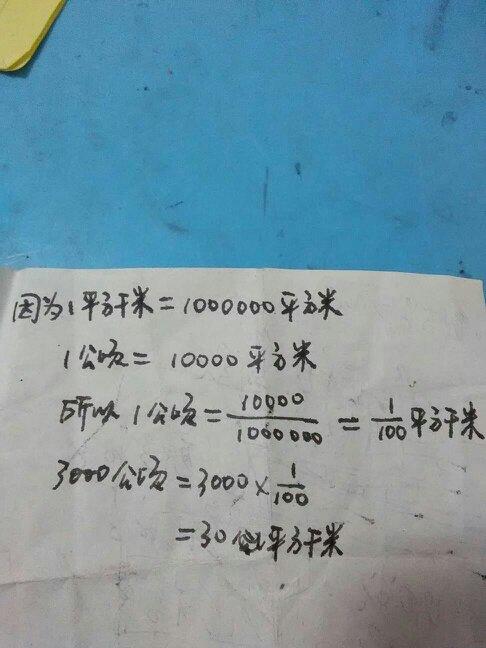 因为1平方千米=1000000平方米
1公顷=10000平方米
所以1公顷=10000/1000000=1/100平方千米
3000公顷=3000×1/100
=30平方千米